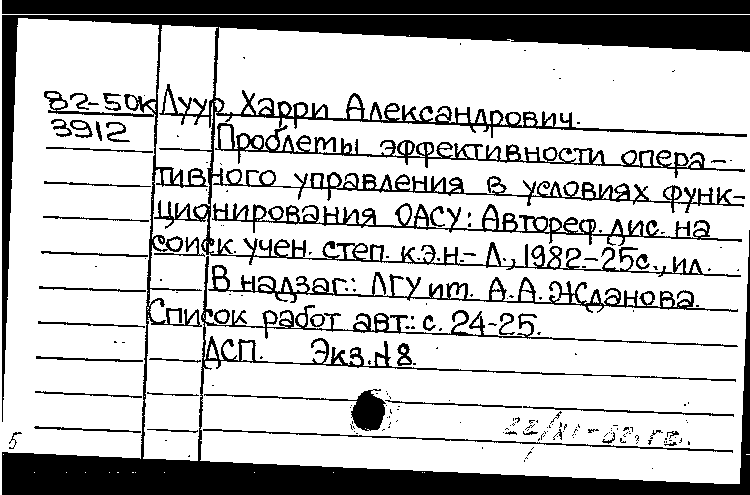 82-50к Луур, Харри Александрович.
3912 Проблемы эффективности опера-
тивного управления в условиях функ-
ционирования ОАСУ: Автореф. дис. на
соиск. учен. степ. к.э.н.- Л., 1982-25с., ил.
В надзаг.: ЛГУ им. А.А. Жданова.
Список работ авт.: с. 24-25.
ДСП. Экз.№8.
22/XI-82.
5